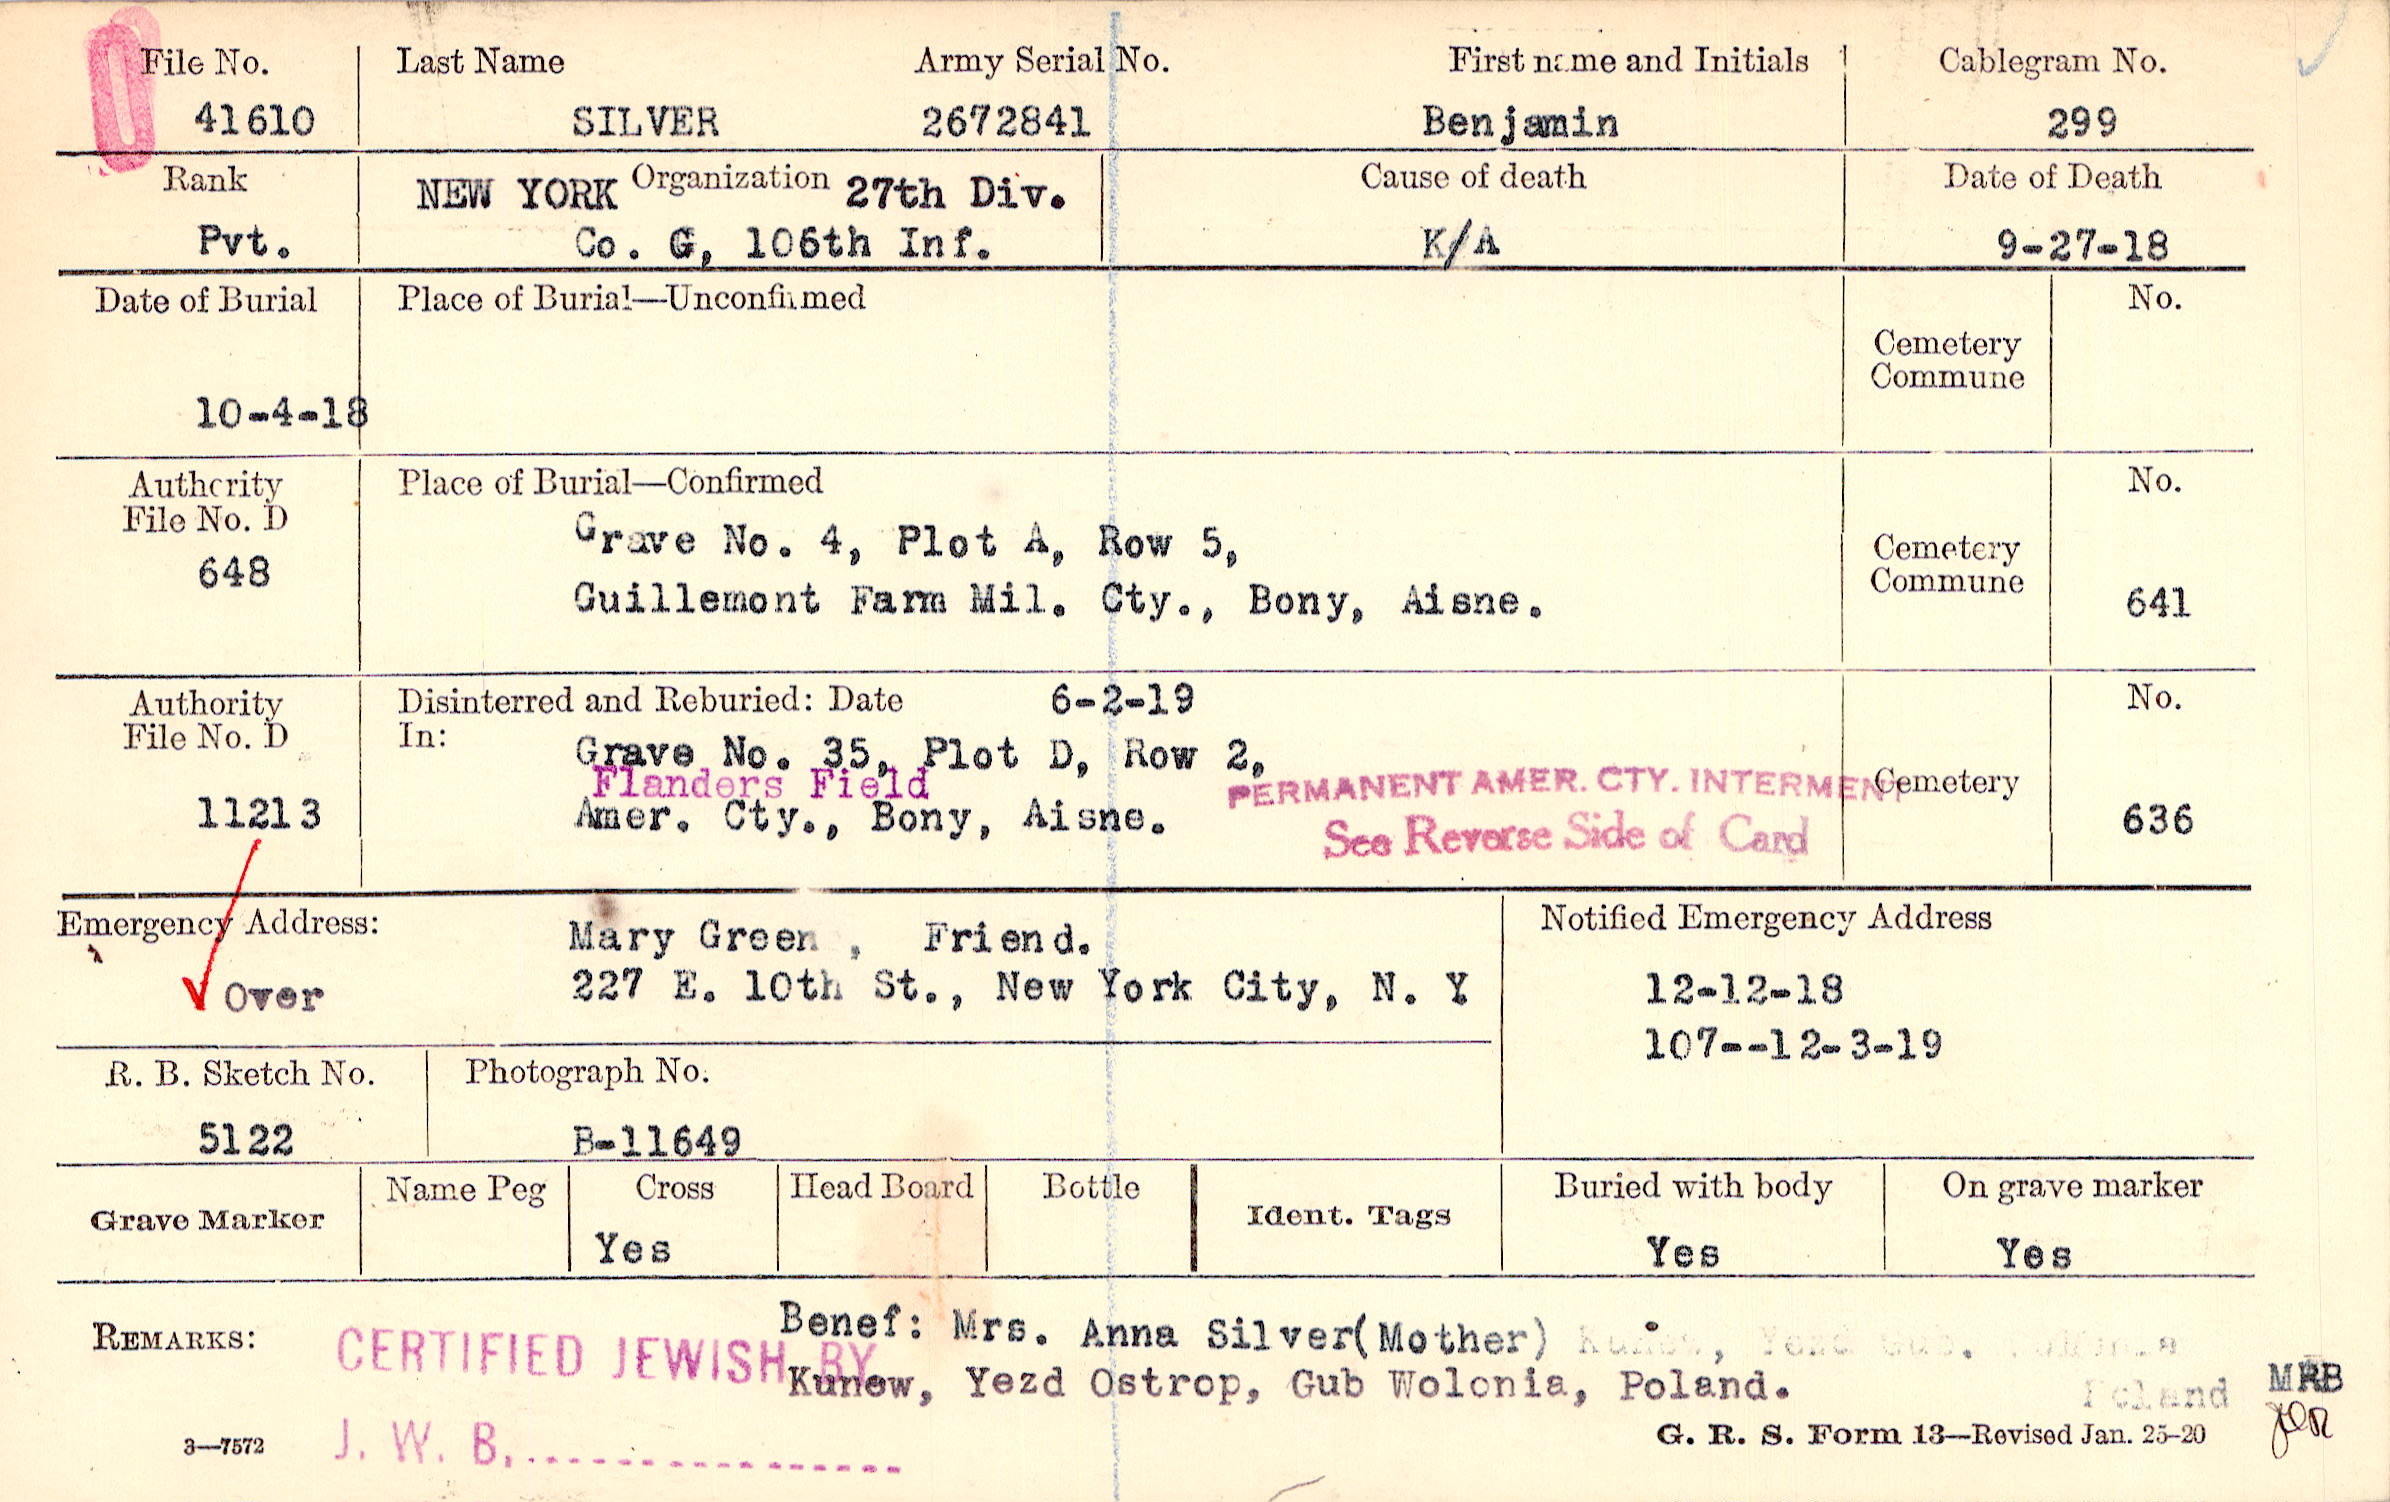 File No. Last Name Army Serial No. First name and Initials Cablegram No.
41610 SILVER 2672841 Benjamin 299
Rank Organization Cause of death Date of Death
NEW YORK 27th Div.
Pvt. Co. G, 106th Inf. K/A 9-27-18
Date of Burial Place of Burial—Unconfirmed No.
Cemetery
Commune
10-4-18
Authority Place of Burial—Confirmed No.
File No. D
Grave No. 4, Plot A, Row 5,
648 Cemetery
Commune
Guillemont Farm Mil. Cty., Bony, Aisne. 641
Authority Disinterred and Reburied: Date 6-2-19 No.
File No. D In:
Grave No. 35, Plot D, Row 2,
Flanders Field PERMANENT AMER. CTY. INTERMENT Cemetery
11213 Amer. Cty., Bony, Aisne. 636
See Reverse Side of Card
Emergency Address: Mary Green , Friend. Notified Emergency Address
Over 227 E. 10th St., New York City, N. Y 12-12-18
107--12-3-19
R. B. Sketch No. Photograph No.
5122 B-11649
Grave Marker Name Peg Cross Head Board Bottle Ident. Tags Buried with body On grave marker
Yes Yes Yes
REMARKS: Benef: Mrs. Anna Silver(Mother)
CERTIFIED JEWISH BY
Kunew, Yezd Ostrop, Gub Wolonia, Poland.
Poland MRB
J. W. B.
3—7572 G. R. S. Form 13—Revised Jan. 25-20